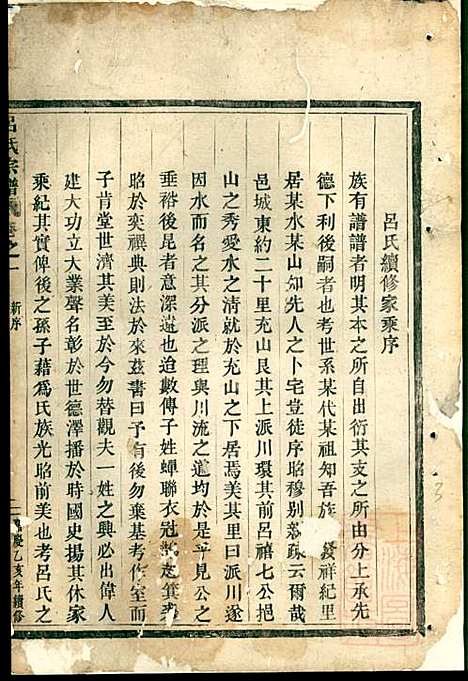 呂氏續修家乘序
族有譜譜者明其本之所自出衍其支之所由分上承先
德下利後嗣者也考世系某代某祖知吾族發祥紀里
居某水某山知先人之卜宅豈徒序昭穆別慕疎云爾哉
邑城東約二十里充山艮其上派川環其前呂禧七公挹
山之秀愛水之清就於充山之下居焉美其里曰派川遂
因水而名之其分派之理與川流之道均於是乎見公之
垂裕後昆者意深遠也迨數傳子姓蟬聯衣冠
昭於奕禩典則法於來茲書曰予有後勿棄基考作室而
子肯堂世濟其美至於今勿替觀夫一姓之興必出偉人
建大功立大業聲名彰於世德澤播於時國史揚其休家
乘紀其實俾後之孫子藉為氏族光昭前美也考呂氏之
呂氏宗譜 卷之一 新序 一 慶乙亥年續修
3